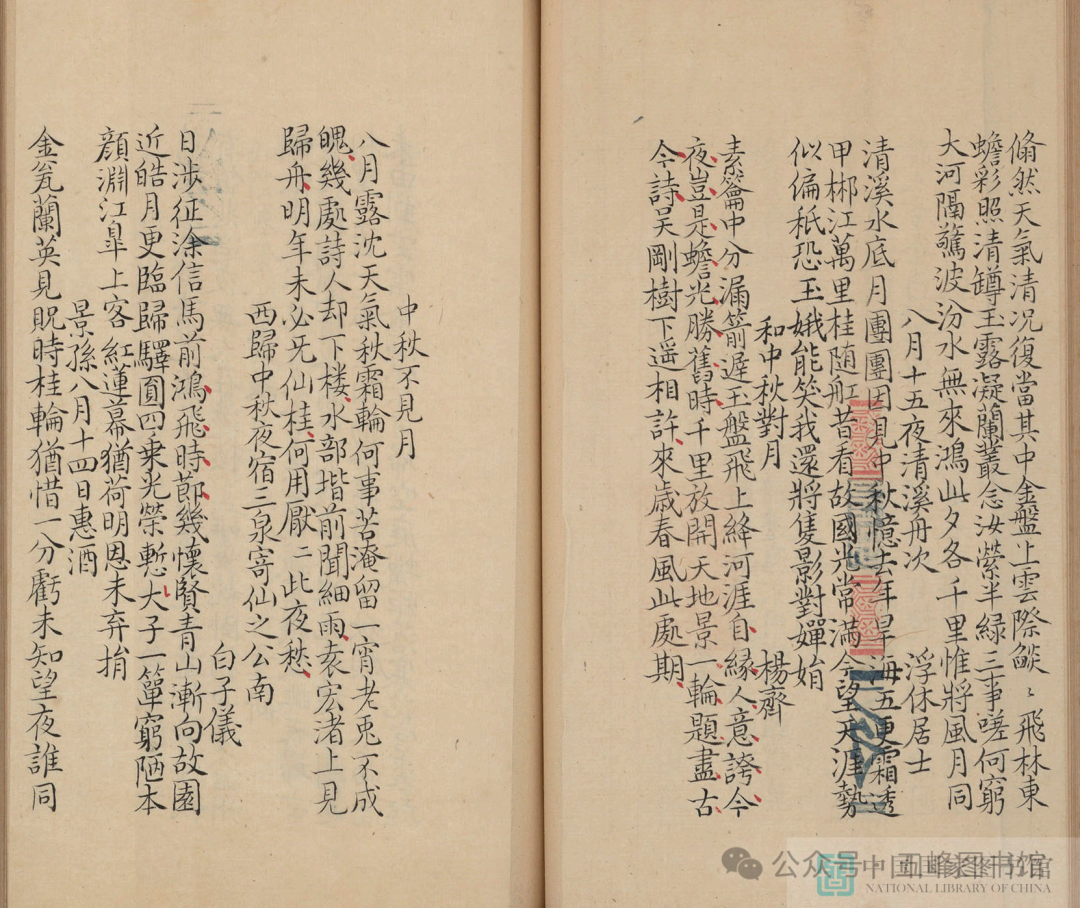 翛然天氣清況復當其中金盤上雲際燄〻飛林東
蟾彩照清罇玉露凝蘭叢念汝縈半緑三事嗟何窮
大河隔驚波汾水無來鴻此夕各千里惟將風月同
八月十五夜清溪舟次 浮休居士
清溪水底月團團因見中秋憶去年旱海五更霜透
甲郴江萬里桂随舡昔看故國光常滿今望天涯勢
似偏秖恐玉娥能笑我還將隻影對嬋娟
和中秋對月 楊齊
素籥中分漏箭遲玉盤飛上絳河涯自縁人意誇今
夜豈是蟾光勝舊時千里放開天地景一輪題盡古
今詩吴剛樹下遥相許來歳春風此處期
中秋不見月
八月露沈天氣秋霜輪何事苦淹留一宵老兎不成
魄幾處詩人却下楼水部堦前聞細雨袁宏渚上見
歸舟明年未必旡仙桂何用厭二此夜愁
西歸中秋夜宿三泉寄仙之公南
白子儀
日涉征涂信馬前鴻飛時莭幾懷賢青山漸向故園
近皓月更臨歸驛圓四乗光榮慙大子一簞窮陋本
顔淵江臯上客紅蓮幕猶荷明恩未弃捐
景孫八月十四日惠酒
金瓮蘭英見貺時桂輪猶惜一分虧未知望夜誰同
公众号
中国国家图书馆
NATIONAL LIBRARY OF CHINA